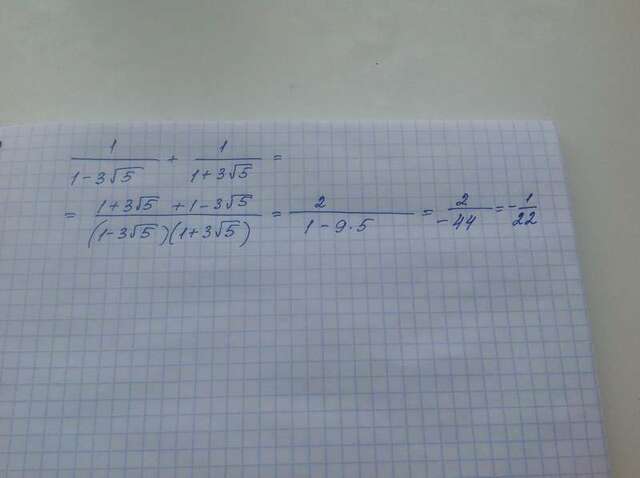 1/(1-3√5) + 1/(1+3√5) =
= (1+3√5 +1-3√5)/((1-3√5)(1+3√5)) = 2/(1-9·5) = 2/-44 = -1/22